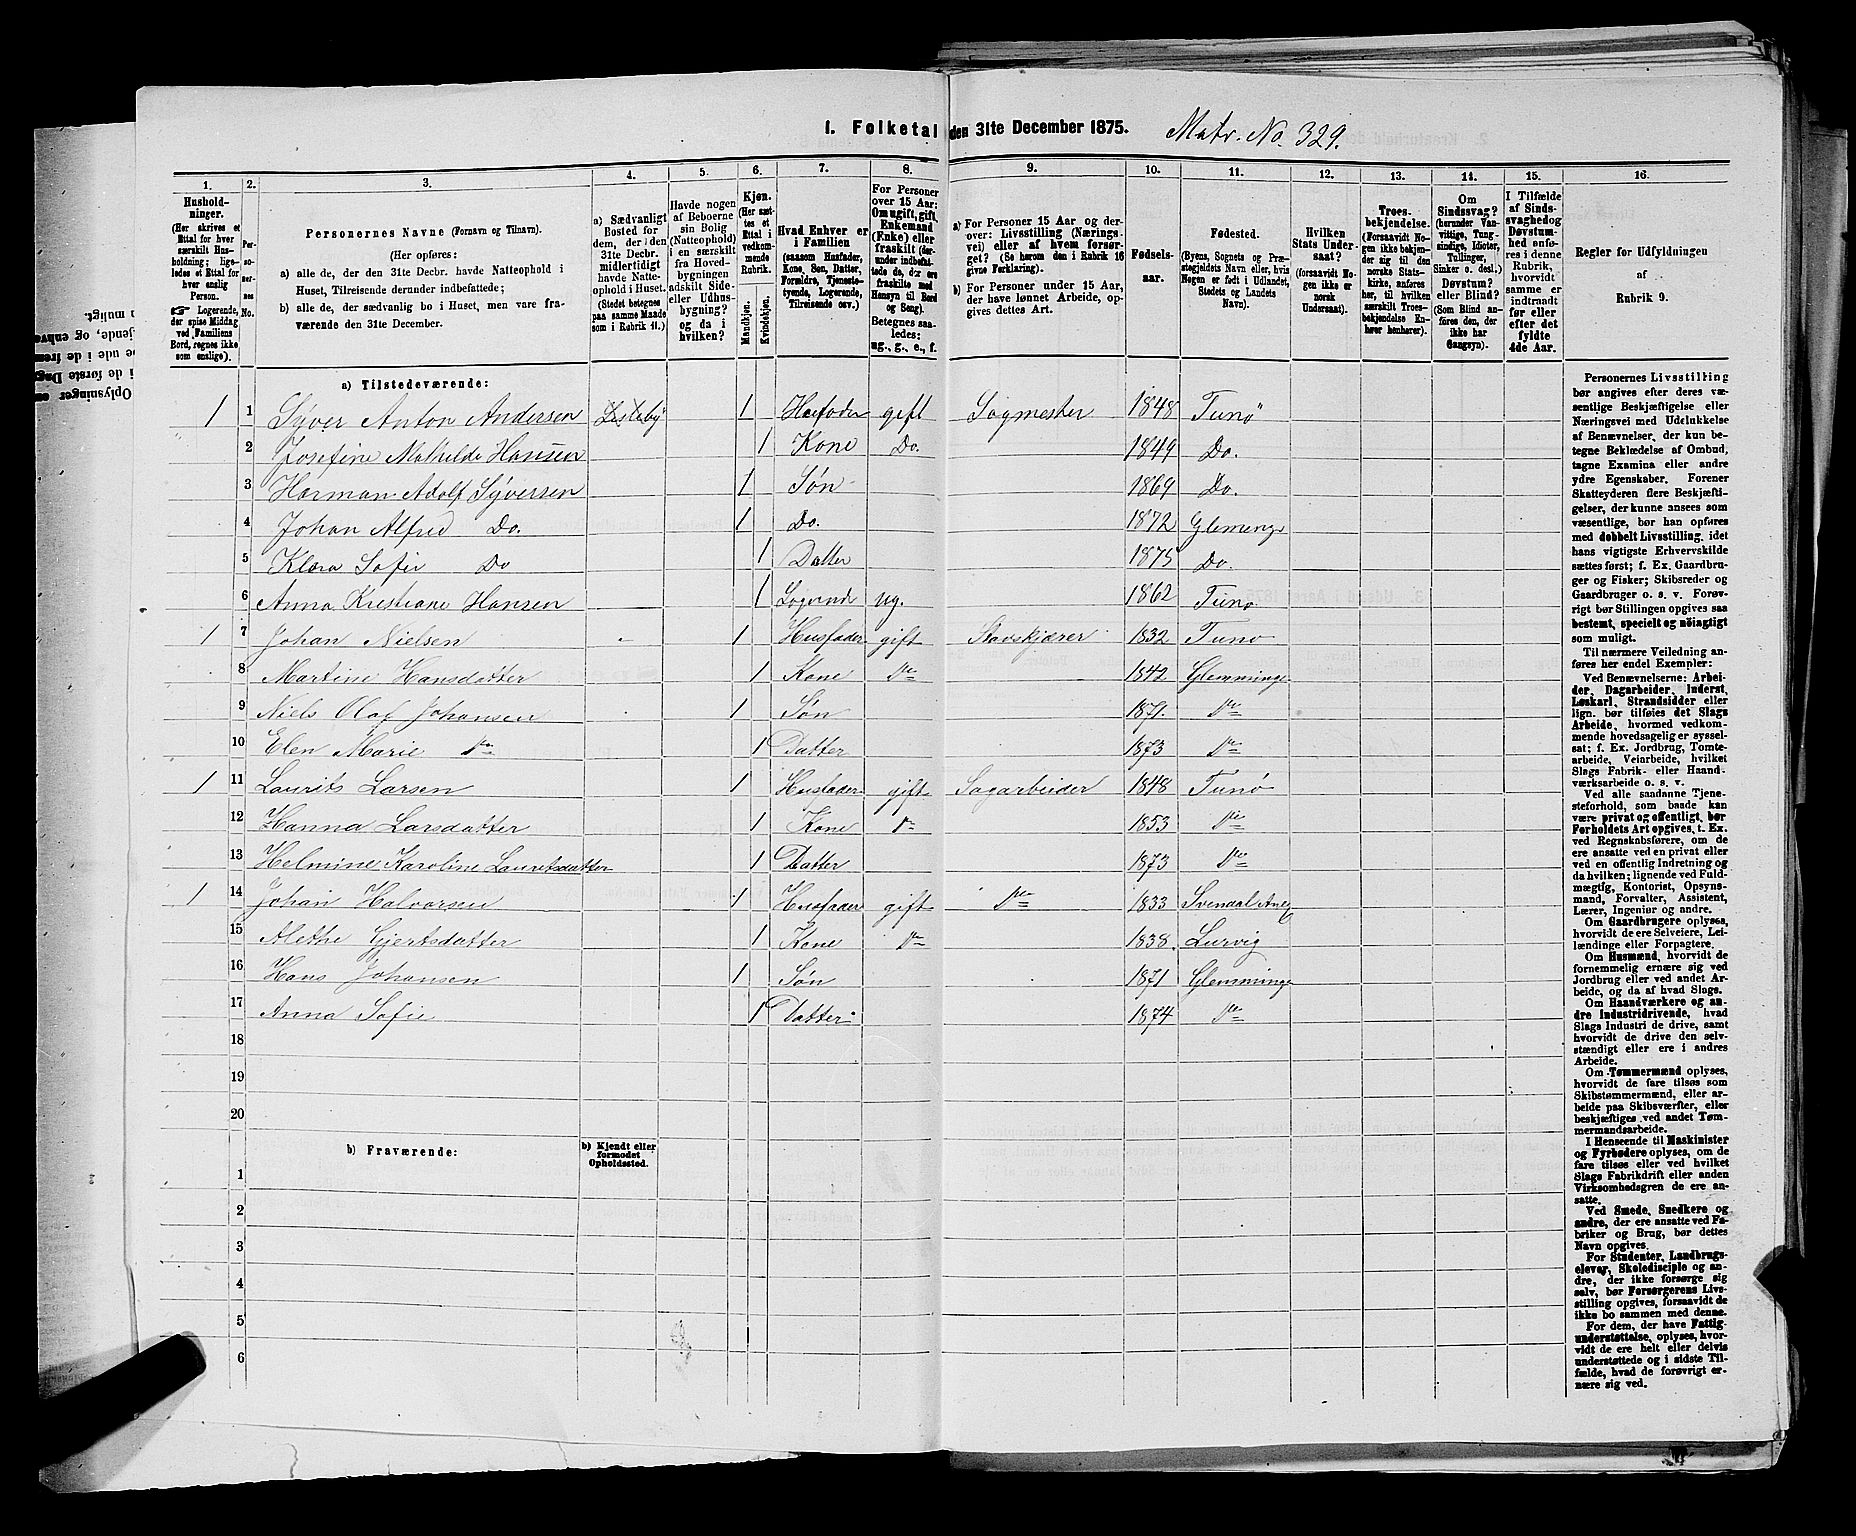 1. Folketal den 31te December 1875. Matr. No. 329.
1. 2. 3. 4. 5. 6. 7. 8. 9. 10. 11. 12. 13. 14. 15. 16.
Husholdninger.
(Her skrives et
Ettal for hver
særskilt Husholdning;
ligeledes et Ettal for
hver enslig
Person.
☞ Logerende,
der spise Middag
ved Familiens
Bord, regnes ikke
som enslige).
Personernes No.
Personernes Navne (Fornavn og Tilnavn).
(Her opføres:
a) alle de, der den 31te Decbr. havde Natteophold i
Huset, Tilreisende derunder indbefattede;
b) alle de, der sædvanlig bo i Huset, men vare fraværende
den 31te December.
a) Sædvanligt
Bosted for
dem, der i den
31te Decbr.
midlertidigt
havde Natteophold
i Huset.
(Stedet betegnes
paa samme Maade
som i Rubrik 11.)
Havde nogen
af Beboerne
sin Bolig
(Natteophold)
i en særskilt
fra Hovedbygningen
adskilt Side-
eller Udhusbygning?
og da i
hvilken?
Kjøn.
(Her sættes et
Ettal i
vedkommende
Rubrik.
Mandkjøn.
Kvindekjøn.
Hvad Enhver er
i Familien
(saasom Husfader,
Kone, Søn, Datter,
Forældre, Tjenestetyende,
Logerende,
Tilreisende osv.)
For Personer
over 15 Aar:
Om ugift, gift,
Enkemand
(Enke) eller
fraskilt
Betegnes saaledes:
ug., g., e., f.
a) For Personer 15 Aar og derover:
Livsstilling (Næringsvei)
eller af hvem forsørget?
(Se herom den i Rubrik 16
givne Forklaring).
b) For Personer under 15 Aar,
der have lønnet Arbeide, opgives
dettes Art.
Fødselsaar.
Fødested.
(Byens, Sognets og Præstegjeldets
Navn eller, hvis
Nogen er født i Udlandet,
Stedets og Landets
Navn).
Hvilken
Stats Undersaat?
(forsaavidt Nogen
ikke er
norsk
Undersaat).
Troesbekjendelse.
(Forsaavidt Nogen
ikke bekjender
sig til den
norske Statskirke,
anføres
her, til hvilken
særskilt Troesbekjendelse
Enhver henhører).
Om
Sindssvag?
(herunder Vanvittige,
Tungsindige,
Idioter,
Tullinger,
Sinker o. desl.)
Døvstum?
eller Blind?
(Som Blind anføres
den, der
ikke har
Gangsyn).
I Tilfælde
af Sindssvaghed og
Døvstumhed
anføres
i denne
Rubrik,
hvorvidt
samme er
indtraadt
før eller
efter det
fyldte
4de Aar.
Regler for Udfyldningen
af
Rubrik 9.
a) Tilstedeværende:
1 1 Syver Anton Andersen Lisleby 1 Husfader gift Sagmester 1848 Tunø
2 Josefine Mathilde Hansen 1 Kone Do. 1849 Do.
3 Harman Adolf Syversen 1 Søn 1869 Do.
4 Johan Alfred Do. 1 Do. 1872 Glemenge
5 Klara Sofie Do 1 Datter 1875 Do.
6 Anna Kristiane Hansen 1 Logerende ug. 1862 Tunø
1 7 Johan Nielsen 1 Husfader gift Stavskjærer 1832 Tunø
8 Martine Hansdatter 1 Kone Do 1842 Glemminge
9 Niels Olaf Johansen 1 Søn 1871. Do
10 Elen Marie Do 1 Datter 1873 Do
1 11 Laurits Larsen 1 Husfader gift Sagarbeider 1848 Tunø
12 Hanna Larsdatter 1 Kone Do 1853 Do
13 Helmine Karoline Lauritsdatter 1 Datter 1873 Do
1 14 Johan Halvorsen 1 Husfader gift Do 1833 Svendal Anex
15 Alethe Gjertsdatter 1 Kone Do 1838. Lurvig
16 Hans Johansen 1 Søn 1871 Glemminge
17 Anna Sofie 1 Datter 1874 Do
18
19
20
b) Fraværende: b) Kjendt eller
formodet
Opholdssted.
1
2
3
4
5
6
Personernes Livsstilling
bør angives efter deres væsentlige
Beskjæftigelse eller
Næringsvei med Udelukkelse
af Benævnelser, der kun betegne
Beklædelse af Ombud,
tagne Examina eller andre
ydre Egenskaber. Forener
Skatteyderen flere Beskjæftigelser,
der kunne ansees som
væsentlige, bør han opføres
med dobbelt Livsstilling, idet
hans vigtigste Erhvervskilde
sættes først; f. Ex. Gaardbruger
og Fisker; Skibsreder og
Gaardbruger o. s. v. Forøvrigt
bør Stillingen opgives saa
bestemt, specielt og nøiagtigt
som muligt.
Til nærmere Veiledning anføres
her endel Exempler:
Ved Benævnelserne: Arbeider,
Dagarbeider, Inderst,
Løskarl, Strandsidder eller
lign. bør tilføies det Slags
Arbeide, hvormed vedkommende
hovedsagelig er sysselsat;
f. Ex. Jordbrug, Tomtearbeide,
Veiarbeide, hvilket
Slags Fabrik- eller Haandværksarbeide
o. s. v.
Ved alle saadanne Tjenesteforhold,
som baade kan
være privat og offentligt, bør
Forholdets Art opgives, t. Ex.
ved Regnskabsførere, om de
ere ansatte ved en privat eller
ved en offentlig Indretning og
da hvilken; lignende ved Fuldmægtig,
Kontorist, Opsynsmand,
Forvalter, Assistent,
Lærer, Ingeniør og andre.
Om Gaardbrugere oplyses,
hvorvidt de ere Selveiere, Leilændinge
eller Forpagtere.
Om Husmænd, hvorvidt de
fornemmelig ernære sig ved
Jordbrug eller ved andet Arbeide,
og da af hvad Slags.
Om Haandværkere og andre
Industridrivende, hvad
Slags Industri de drive, samt
hvorvidt de drive den selvstændigt
eller ere i andres
Arbeide.
Om Tømmermænd oplyses,
hvorvidt de fare tilsøs som
Skibstømmermænd, eller arbeide
paa Skibsværfter, eller
beskjæftiges ved andet Tømmermandsarbeide.
I Henseende til Maskinister
og Fyrbødere oplyses, om de
fare tilsøs eller ved hvilket
Slags Fabrikdrift eller anden
Virksomhedsgren de ere ansatte.
Ved Smede, Snedkere og
andre, der ere ansatte ved Fabriker
og Brug, bør dettes
Navn opgives.
For Studenter, Landbrugselever,
Skoledisciple og andre,
der ikke forsørge sig
selv, bør Forsørgerens Livsstilling
opgives, forsaavidt de
ikke bo sammen med denne.
For dem, der have Fattigunderstøttelse,
oplyses, hvorvidt
de ere helt eller delvis
understøttede og i sidste Tilfælde,
hvad de forøvrigt ernære
sig ved.